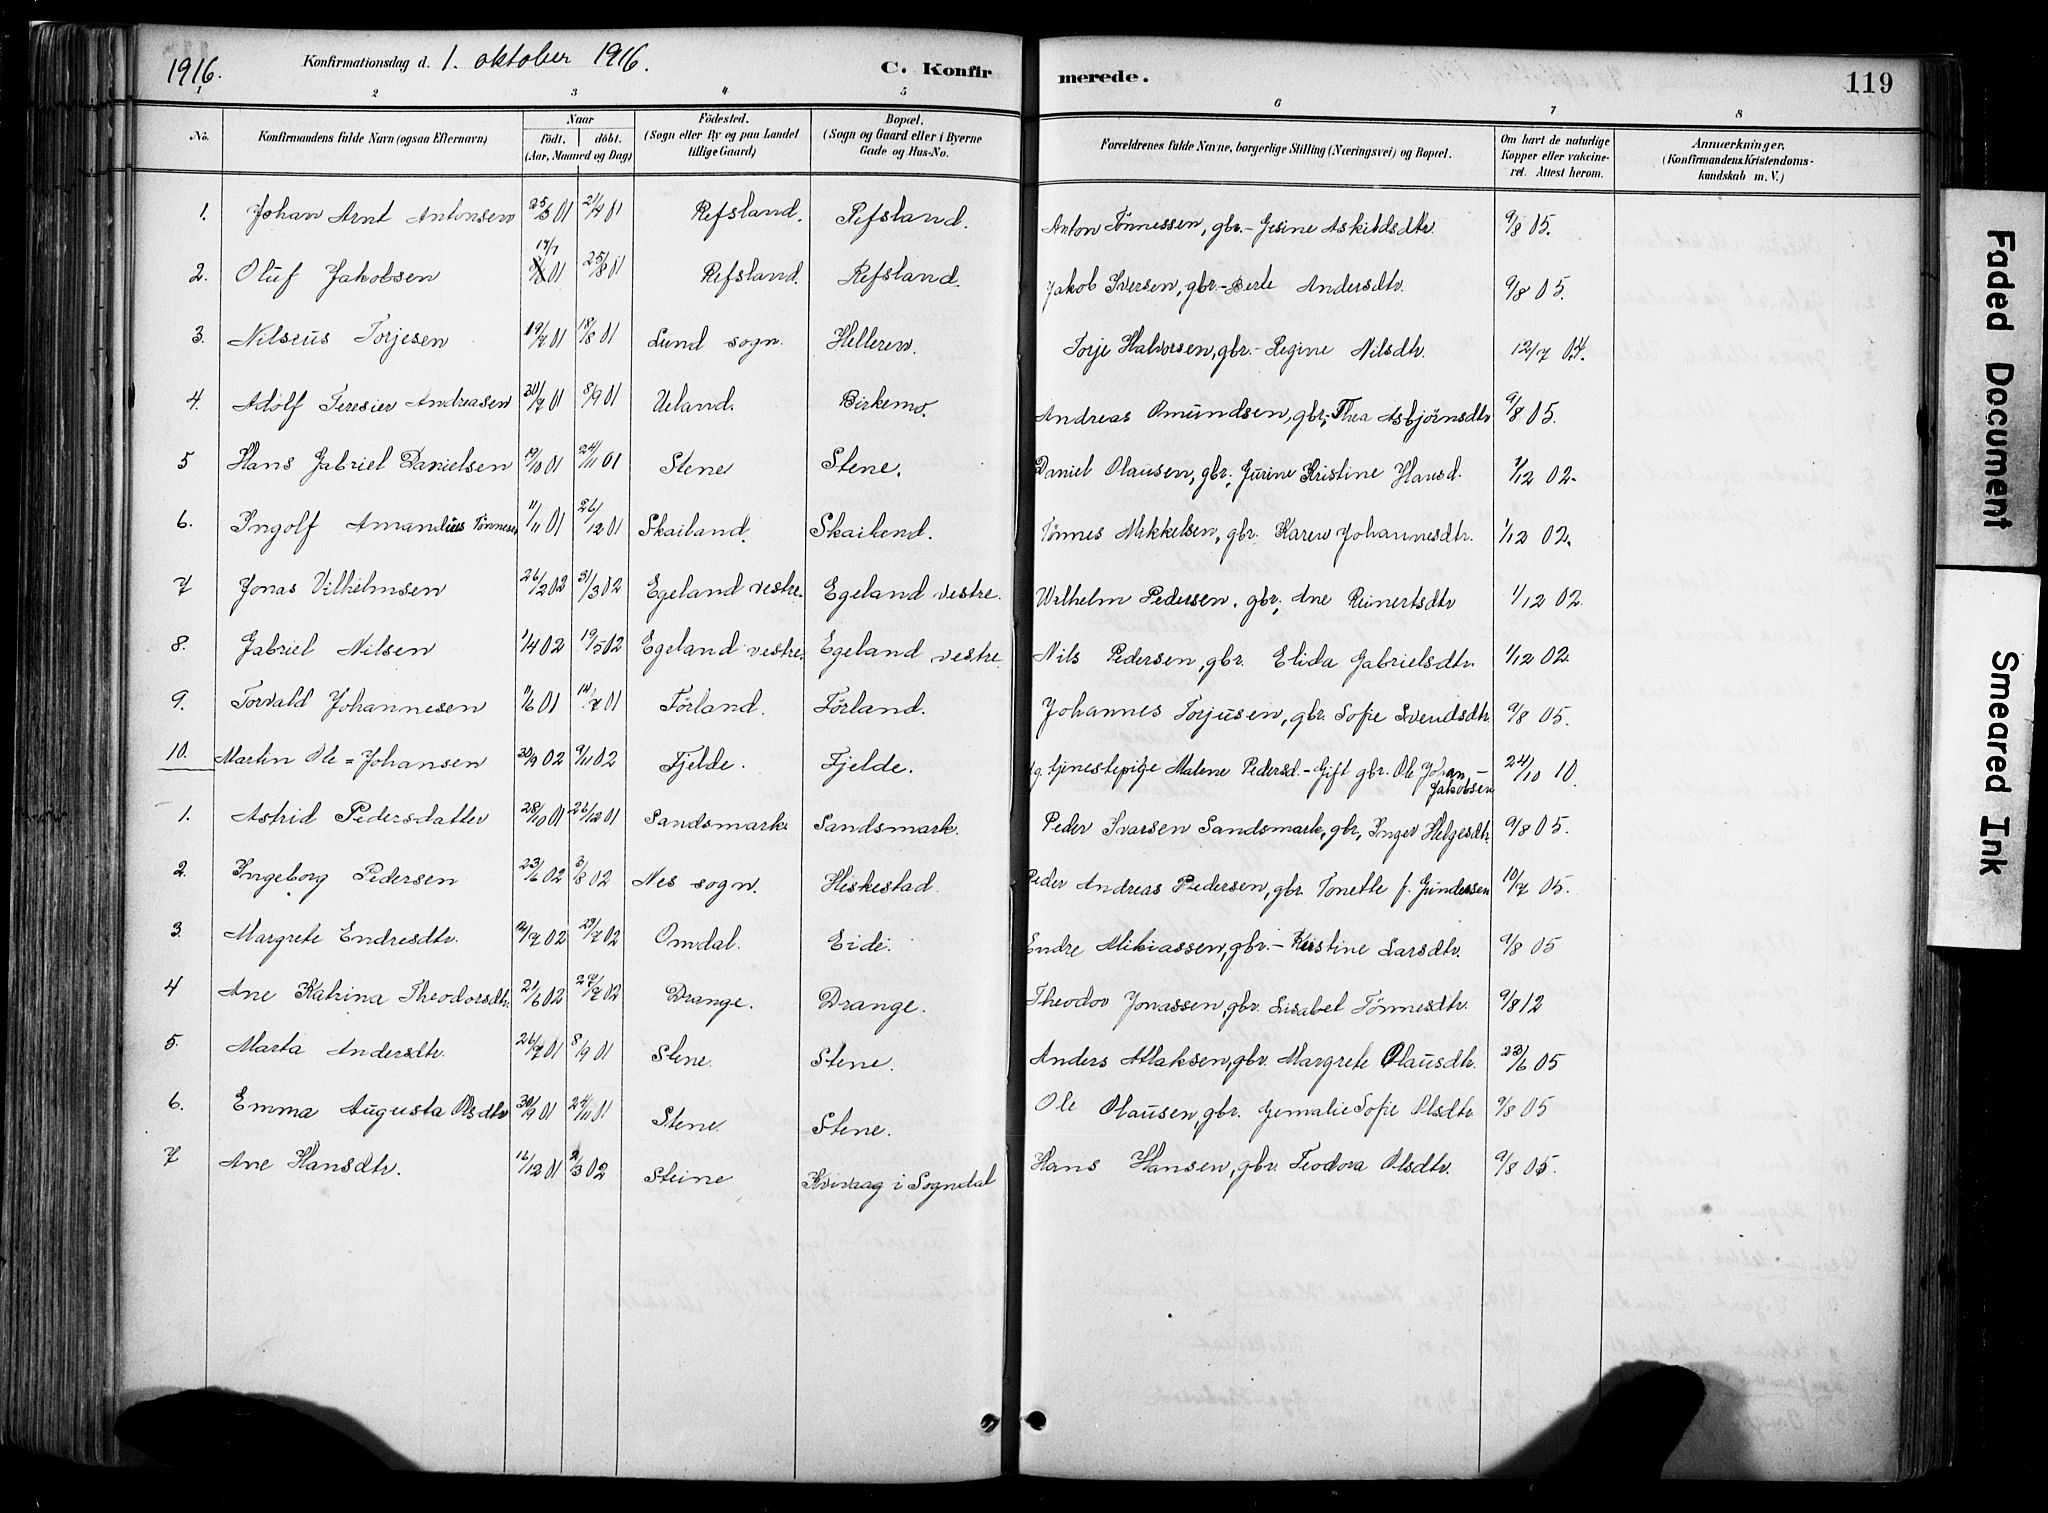 1916. Konfirmationsdag d. 1. oktober 1916. C. Konfirmerede. 119
1 2 3 4 5 6 7 8
No. Konfirmandens fulde Navn (ogsaa Efternavn) Naar födt. döbt. (Aar, Maaned og Dag) Födested. (Sogn eller By og paa Landet tillige Gaard) Bopæl. (Sogn og Gaard eller i Byerne Gade og Hus-No. Forældrenes fulde Navne, borgerlige Stilling (Næringsvei) og Bopæl. Om havt de naturlige Kopper eller vakcineret. Attest herom. Anmærkninger. (Konfirmandens Kristendomskundskab m. V.)
1. Johan Arnt Antonsen 25/3 01 21/4 01 Refsland. Refsland. Anton Tönnessen, gbr. - Gesine Askildsdtr. 9/8 05.
2. Oluf Jakobsen 19/7 01 25/8 01 Refsland. Refsland. Jakob Iversen, gbr. - Berte Andersdtr. 9/8 05.
3. Nilseus Torjesen 19/7 01 18/8 01 Lund sogn. Helleren. Torje Halvorsen, gbr. - Regine Nilsdtr. 12/7 04.
4. Adolf Teresier Andreasen 30/7 01 8/9 01 Ueland. Birkemo. Andreas Omundsen, gbr., Thea Asbjörnsdtr 9/8 05.
5 Hans Gabriel Danielsen 19/10 01 24/11 01 Stene Stene. Daniel Olausen, gbr., Jurine Kristine Hansd. 1/12 02.
6. Ingolf Amandius Tönnesen 11/11 01 26/12 01 Skailand. Skailand. Tönnes Mikkelsen, gbr. Karen Johannesdtr. 1/12 02.
7 Jonas Vilhelmsen 26/2 02 31/3 02 Egeland vestre. Egeland vestre. Wilhelm Pedersen. gbr., Ane Reinertsdtr 1/12 02.
8. Gabriel Nilsen 1/4 02 19/5 02 Egeland vestre. Egeland vestre. Nils Pedersen, gbr. Elida Gabrielsdtr. 1/12 02.
9. Torvald Johannesen 11/6 01 14/7 01 Förland. Förland. Johannes Torjusen, gbr. Sofie Svendsdtr 9/8 05.
10. Martin Ole = Johansen 30/9 02 9/11 02 Fjelde. Fjelde. Ug. tjenestepige Malene Pedersd. - Gift gbr. Ole Johan Jakobsen 24/10 10.
1. Astrid Pedersdatter 28/10 01 26/12 01 Sandsmark Sandsmark. Peder Ivarsen Sandsmark, gbr., Inger Helgesdtr. 9/8 05.
2. Ingeborg Pedersen 23/6 02 3/8 02 Nes sogn. Heskestad. Peder Andreas Pedersen, gbr. Tonette f. Gundersen 10/7 05.
3. Margrete Endresdtr. 14/7 02 29/7 02 Omdal. Eide. Endre Mikiassen, gbr. - Kristine Larsdtr. 9/8 05
4 Ane Katrina Theodorsdtr. 21/6 02 27/7 02 Drange. Drange. Theodor Jonassen, gbr. Lisabet Tönnesdtr. 9/8 12
5. Marta Andersdtr. 26/7 01 8/9 01 Stene. Stene. Anders Atlaksen, gbr. Margrete Olausdtr. 23/6 05
6. Emma Augusta Olsdtr 30/9 01 24/11 01 Stene. Stene. Ole Olausen, gbr. Gemalie Sofie Olsdtr. 9/8 05
7 Ane Hansdtr. 16/12 01 2/3 02 Steine Kvivaag i Sogndal Hans Hansen, gbr. Teodora Olsdtr. 9/8 05.
Faded Document
Smeared Ink